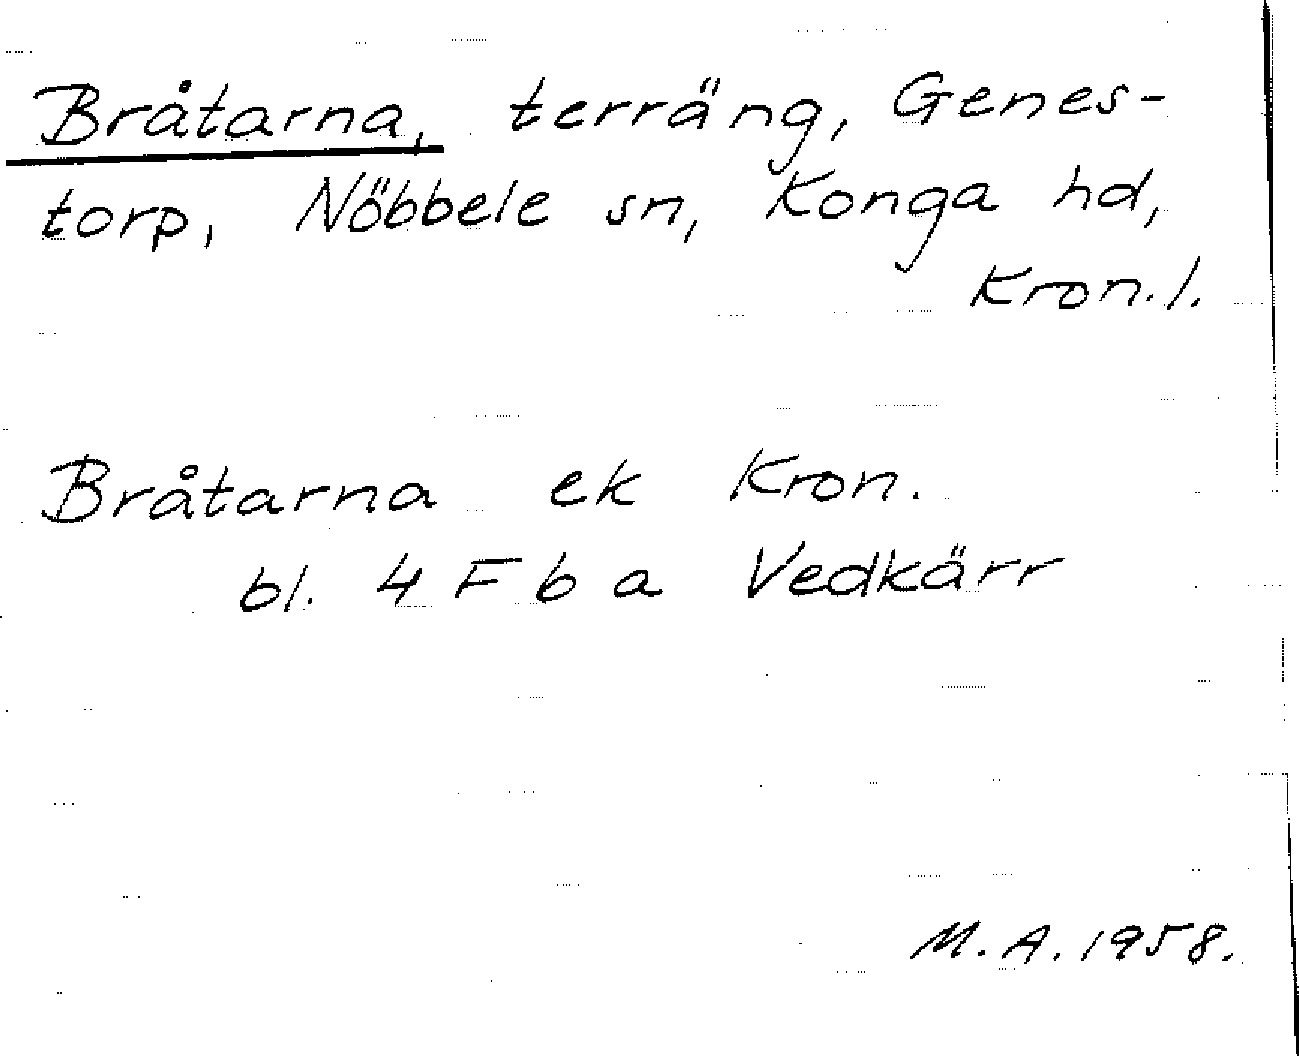 Bråtarna, terräng, Genes-
torp, Nöbbele sn, Konga hd,
Kron. l.
Bråtarna ek Kron.
bl. 4 F b a Vedkärr
M. A. 1958.